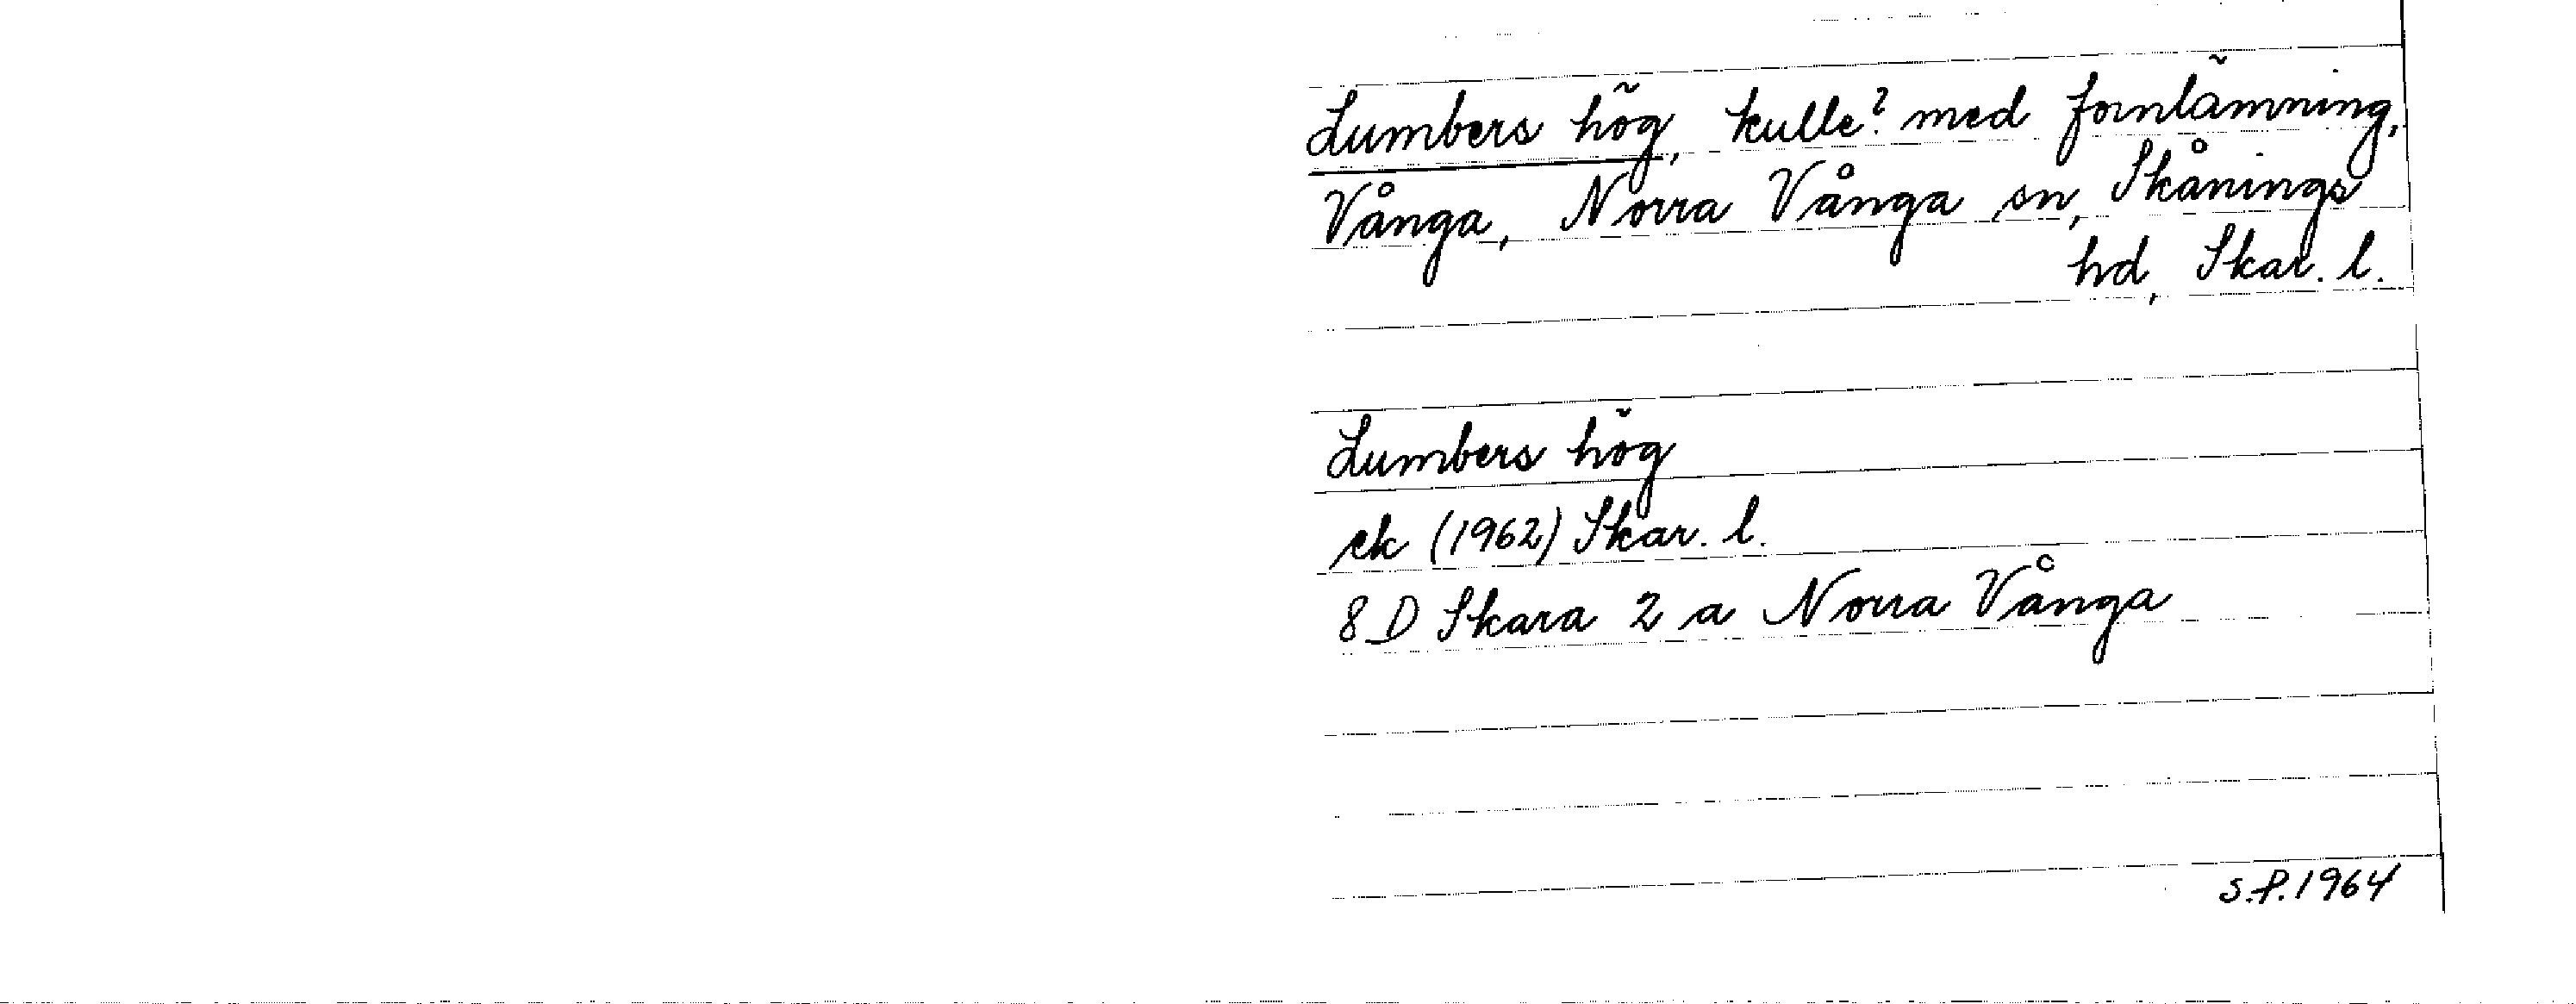 Lumbers hög, kulle? med fornlämning,
Vånga, Norra Vånga sn, Skånings
hd, Skar. l.
Lumbers hög
ek (1962) Skar. l.
8 D Skara 2 a Norra Vånga
S.P. 1964